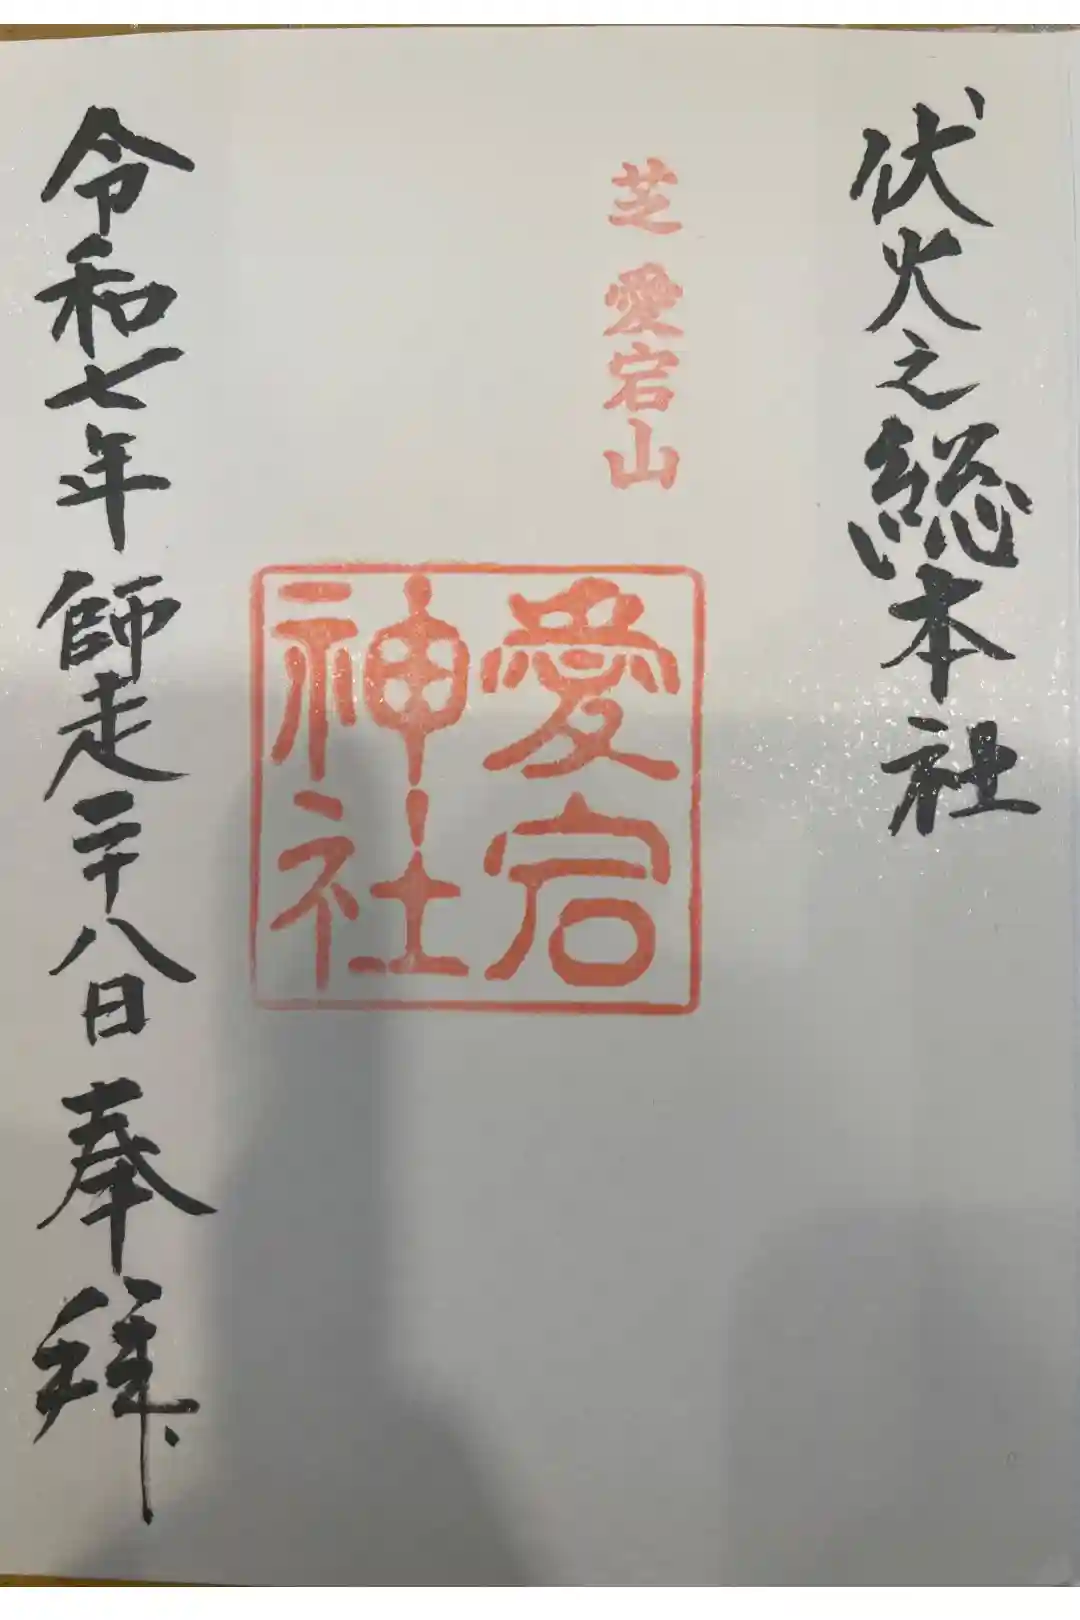 伏火之総本社
芝 愛宕山
愛宕
神社
令和七年 師走二十八日 奉拝